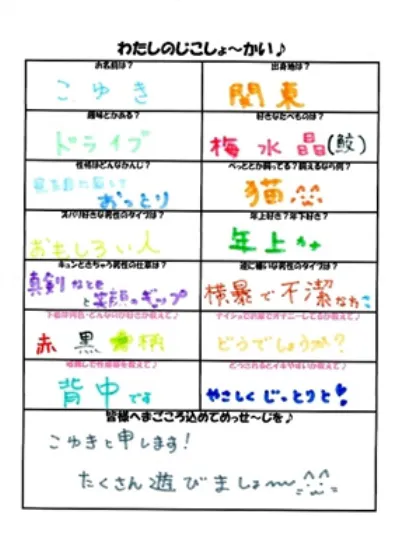 わたしのじこしょ～かい♪
お名前は？
出身地は？
こゆき
関東
趣味とかある？
好きなたべものは？
ドライブ
梅水晶(鮫)
性格はどんなかんじ？
ぺっととか飼ってる？飼えるなら何？
見た目に反して
おっとり
猫
ズバリ好きな男性のタイプは？
年上好き？年下好き？
おもしろい人
年上かな
キュンときちゃう男性の仕草は？
逆に嫌いな男性のタイプは？
真剣なとき
と笑顔のギャップ
横暴で不潔な
下着は何色・どんなのが好きか教えて♪
赤 黒 柄
どうでしょうか？
性感帯を教えて♪
背中です
やさしくじっとりと
皆様へまごころ込めてめっせ～じを♪
こゆきと申します！
たくさん遊びましょ～